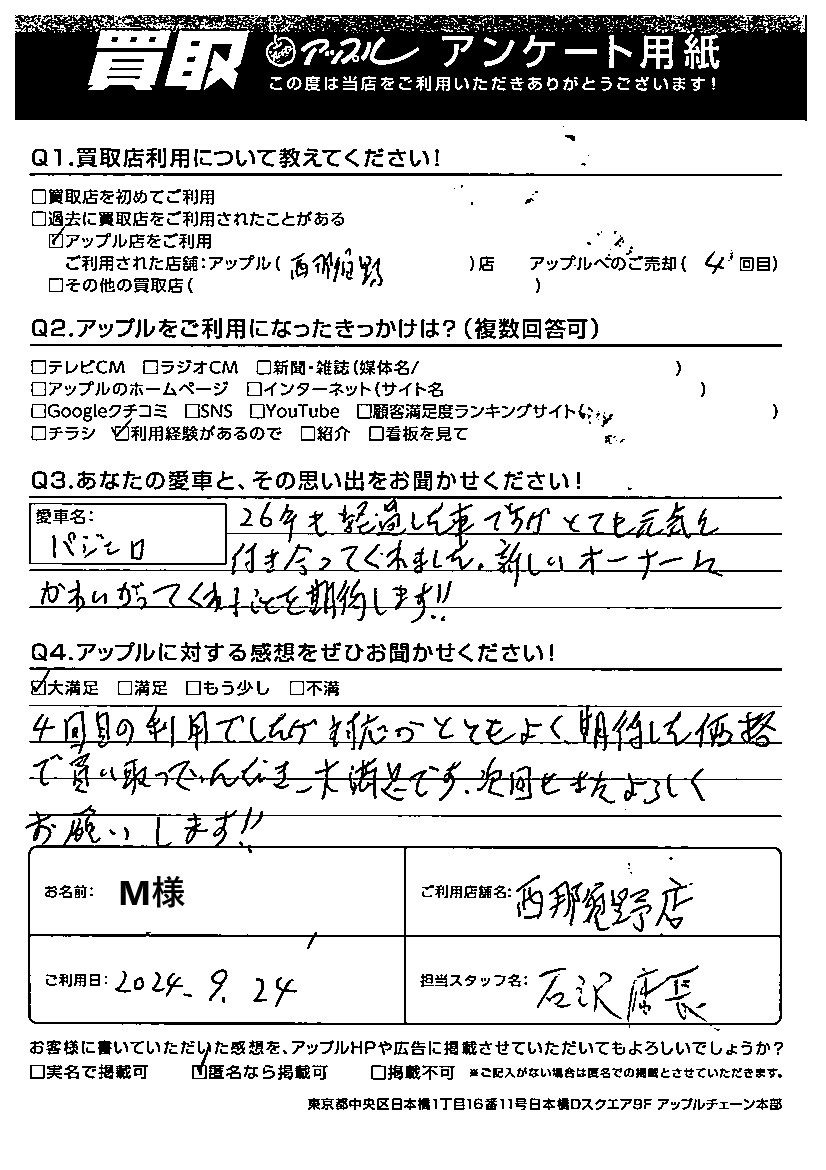 買取 アップル アンケート用紙
この度は当店をご利用いただきありがとうございます!
Q1.買取店利用について教えてください!
□買取店を初めてご利用
□過去に買取店をご利用されたことがある
☑アップル店をご利用
ご利用された店舗:アップル( 西那須野 )店 アップルへのご売却( 4 回目)
□その他の買取店( )
Q2.アップルをご利用になったきっかけは?(複数回答可)
□テレビCM □ラジオCM □新聞・雑誌(媒体名/ )
□アップルのホームページ □インターネット(サイト名 )
□Googleクチコミ □SNS □YouTube □顧客満足度ランキングサイト( )
□チラシ ☑利用経験があるので □紹介 □看板を見て
Q3.あなたの愛車と、その思い出をお聞かせください!
愛車名:
パジェロ
26年も経過した車ですがとても元気に
付き合ってくれました。新しいオーナーに
かわいがってくれることを期待します!!
Q4.アップルに対する感想をぜひお聞かせください!
☑大満足 □満足 □もう少し □不満
4回目の利用でしたが対応がとてもよく期待した価格
で買い取っていただき大満足です。次回もまたよろしく
お願いします!!
お名前: M様
ご利用店舗名: 西那須野店
ご利用日: 2024. 9. 24
担当スタッフ名: 石沢店長
お客様に書いていただいた感想を、アップルHPや広告に掲載させていただいてもよろしいでしょうか?
□実名で掲載可 ☑匿名なら掲載可 □掲載不可 ※ご記入がない場合は匿名での掲載とさせていただきます。
東京都中央区日本橋1丁目16番11号日本橋Dスクエア9F アップルチェーン本部